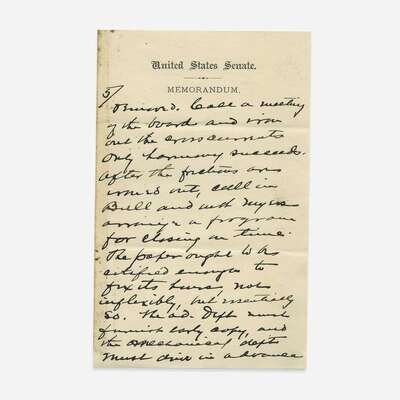 United States Senate.
MEMORANDUM.
5/
Onward. Call a meeting
of the board and iron
out the crosscurrents
Only harmony succeeds.
After the frictions are
ironed out, call in
Bull and with
arrange a program
for closing on time.
The paper ought to be
enough to
fix its hours, not
inflexibly, but essentially
so. The ad. Dept must
furnish early copy, and
the mechanical depts
must drive in advance